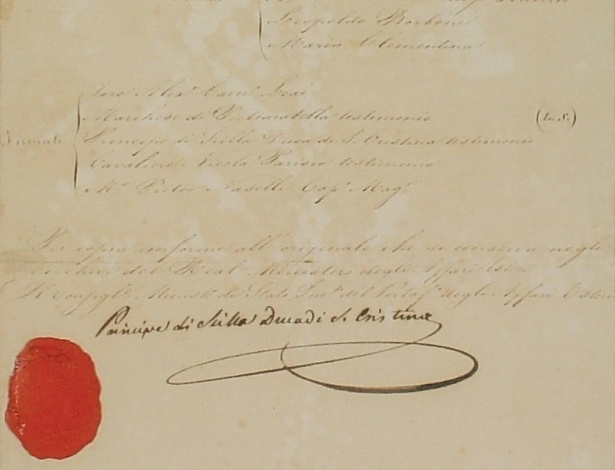 Leopoldo Borbone
Maria Clementina
Marchese di Pietracatella testimonio
(L. S.)
Firmati
Principe di Scilla Duca di S. Cristina testimonio
Cavaliere Nicola Parisio testimonio
Mr. Pietro Naselli Cap. Magr.
Per copia conforme all' originale che si conserva negli
Archivi del Real Ministero degli Affari Esteri
Il Consigl. Minist. di Stato del Portaf. degli Affari Esteri
Principe di Scilla Duca di S. Cristina